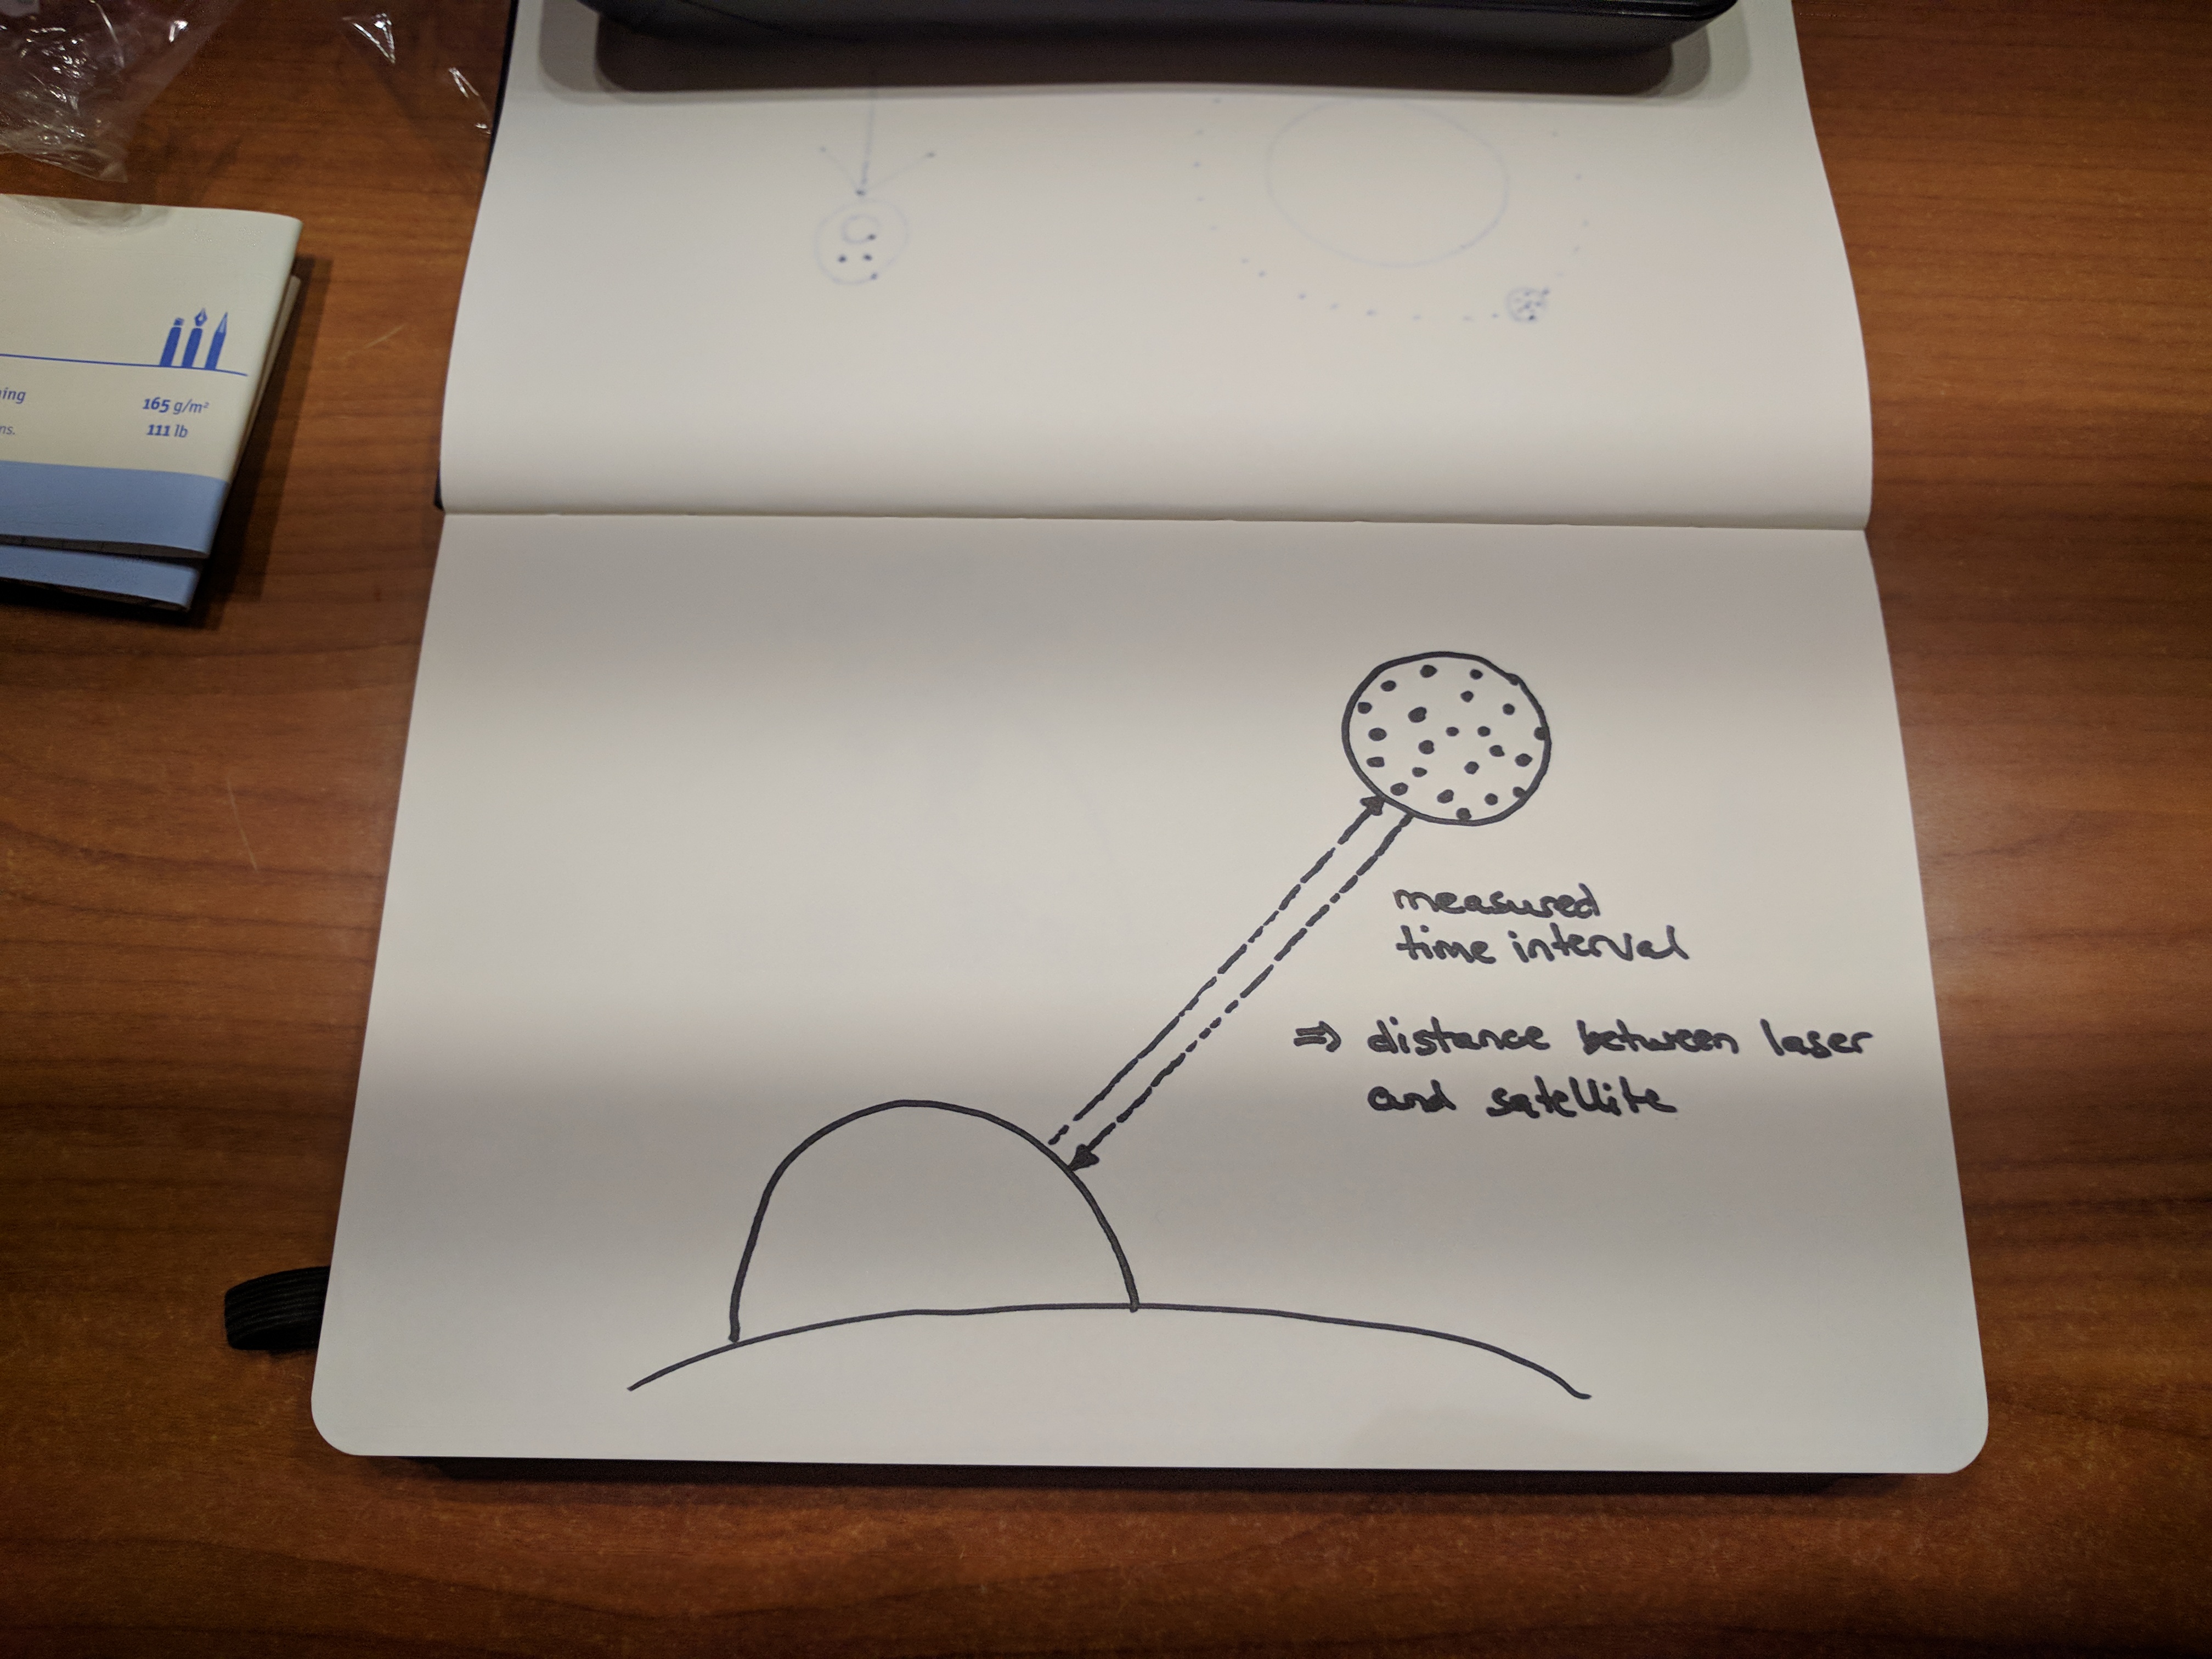 ning
ns.
165 g/m²
111 lb
measured
time interval
⇒ distance between laser
and satellite